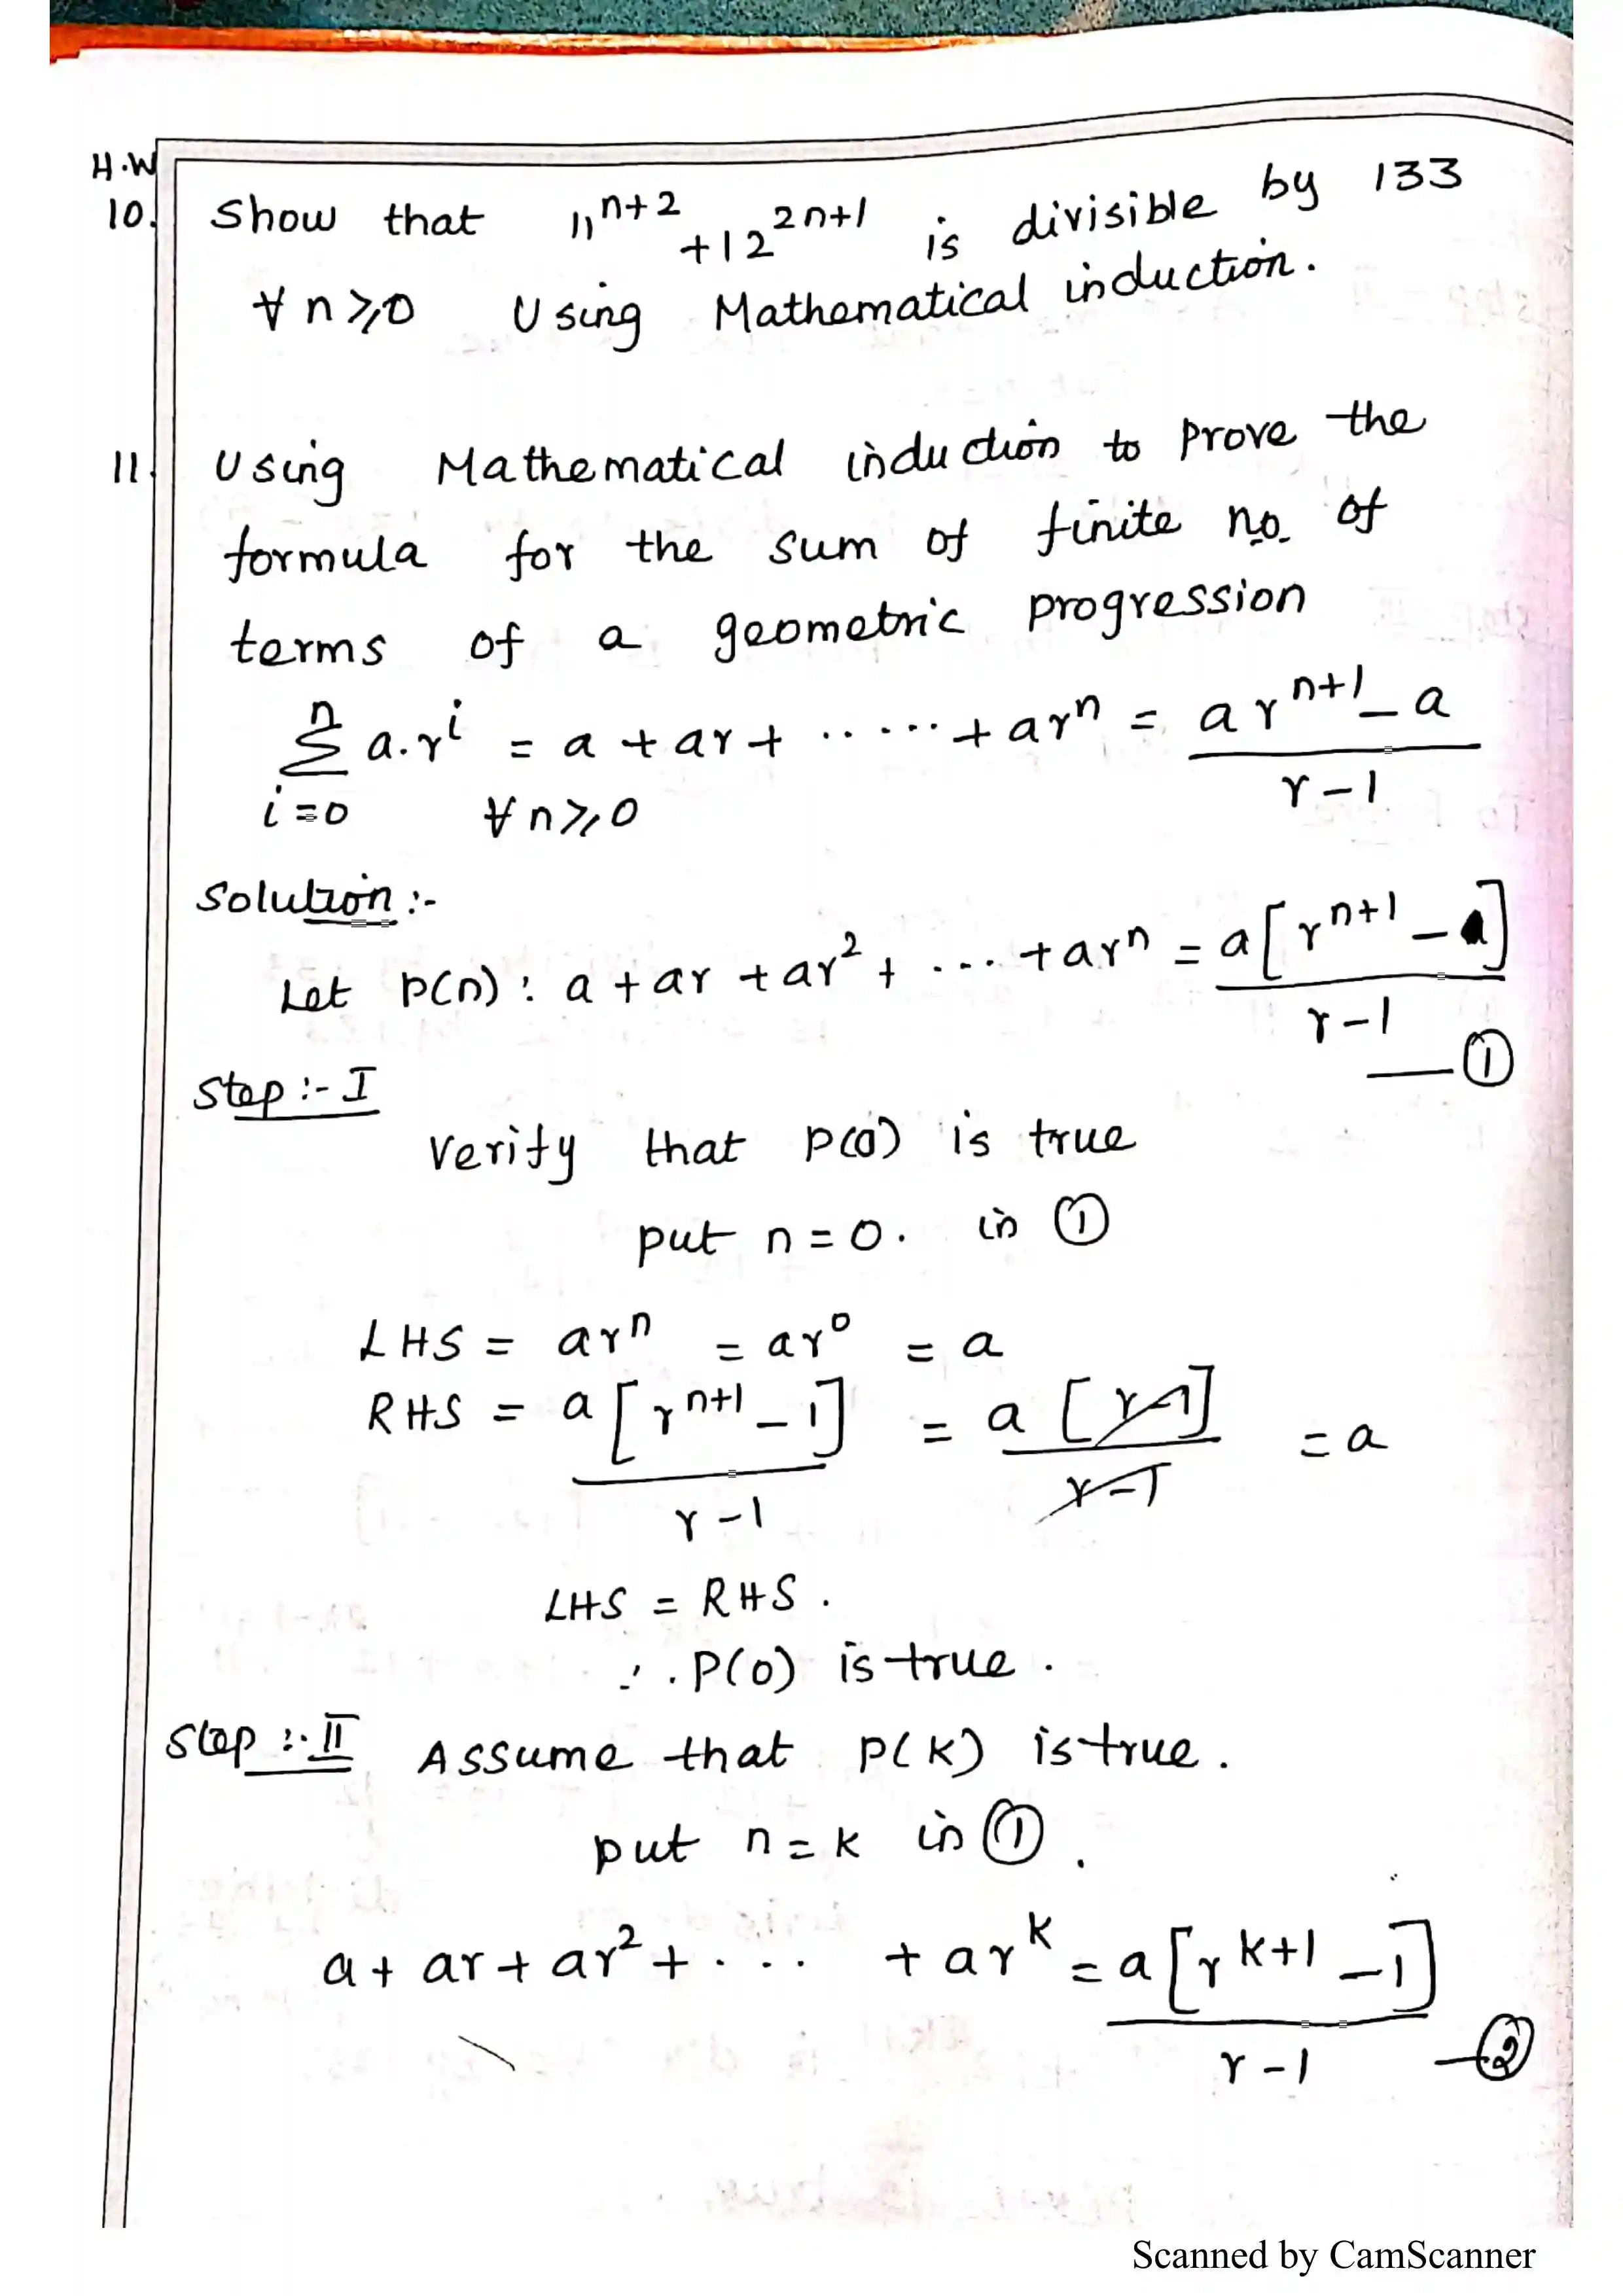 H.W
10. Show that 11^{n+2} + 12^{2n+1} is divisible by 133
∀ n ≥ 0 Using Mathematical induction.
11. Using Mathematical induction to prove the
formula for the sum of finite no. of
terms of a geometric progression
\sum_{i=0}^{n} a.r^i = a + ar + ...... + ar^n = \frac{ar^{n+1} - a}{r-1}
∀ n ≥ 0
Solution :-
Let P(n) : a + ar + ar^2 + ... + ar^n = \frac{a[r^{n+1} - 1]}{r-1} — ①
Step :- I
Verify that P(0) is true
put n = 0. in ①
LHS = ar^n = ar^0 = a
RHS = \frac{a[r^{n+1} - 1]}{r-1} = \frac{a[r-1]}{r-1} = a
LHS = RHS.
∴ P(0) is true.
Step :- II Assume that P(K) is true.
put n = K in ①.
a + ar + ar^2 + ... + ar^K = \frac{a[r^{K+1} - 1]}{r-1} — ②
Scanned by CamScanner